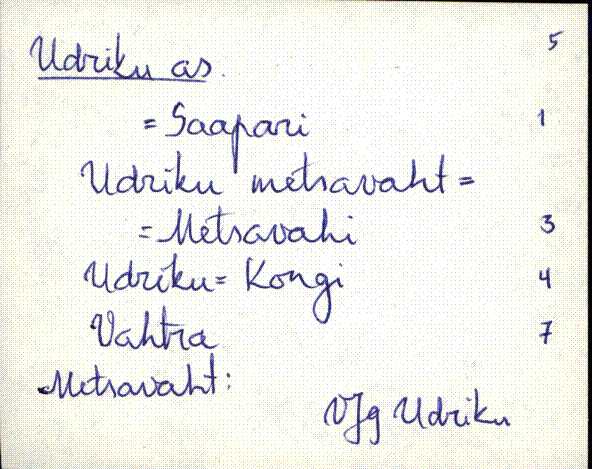 Udriku as. 5
= Saapari 1
Udriku metsavaht =
= Metsavahi 3
Udriku = Kongi 4
Vahtra 7
Metsavaht:
VJg Udriku